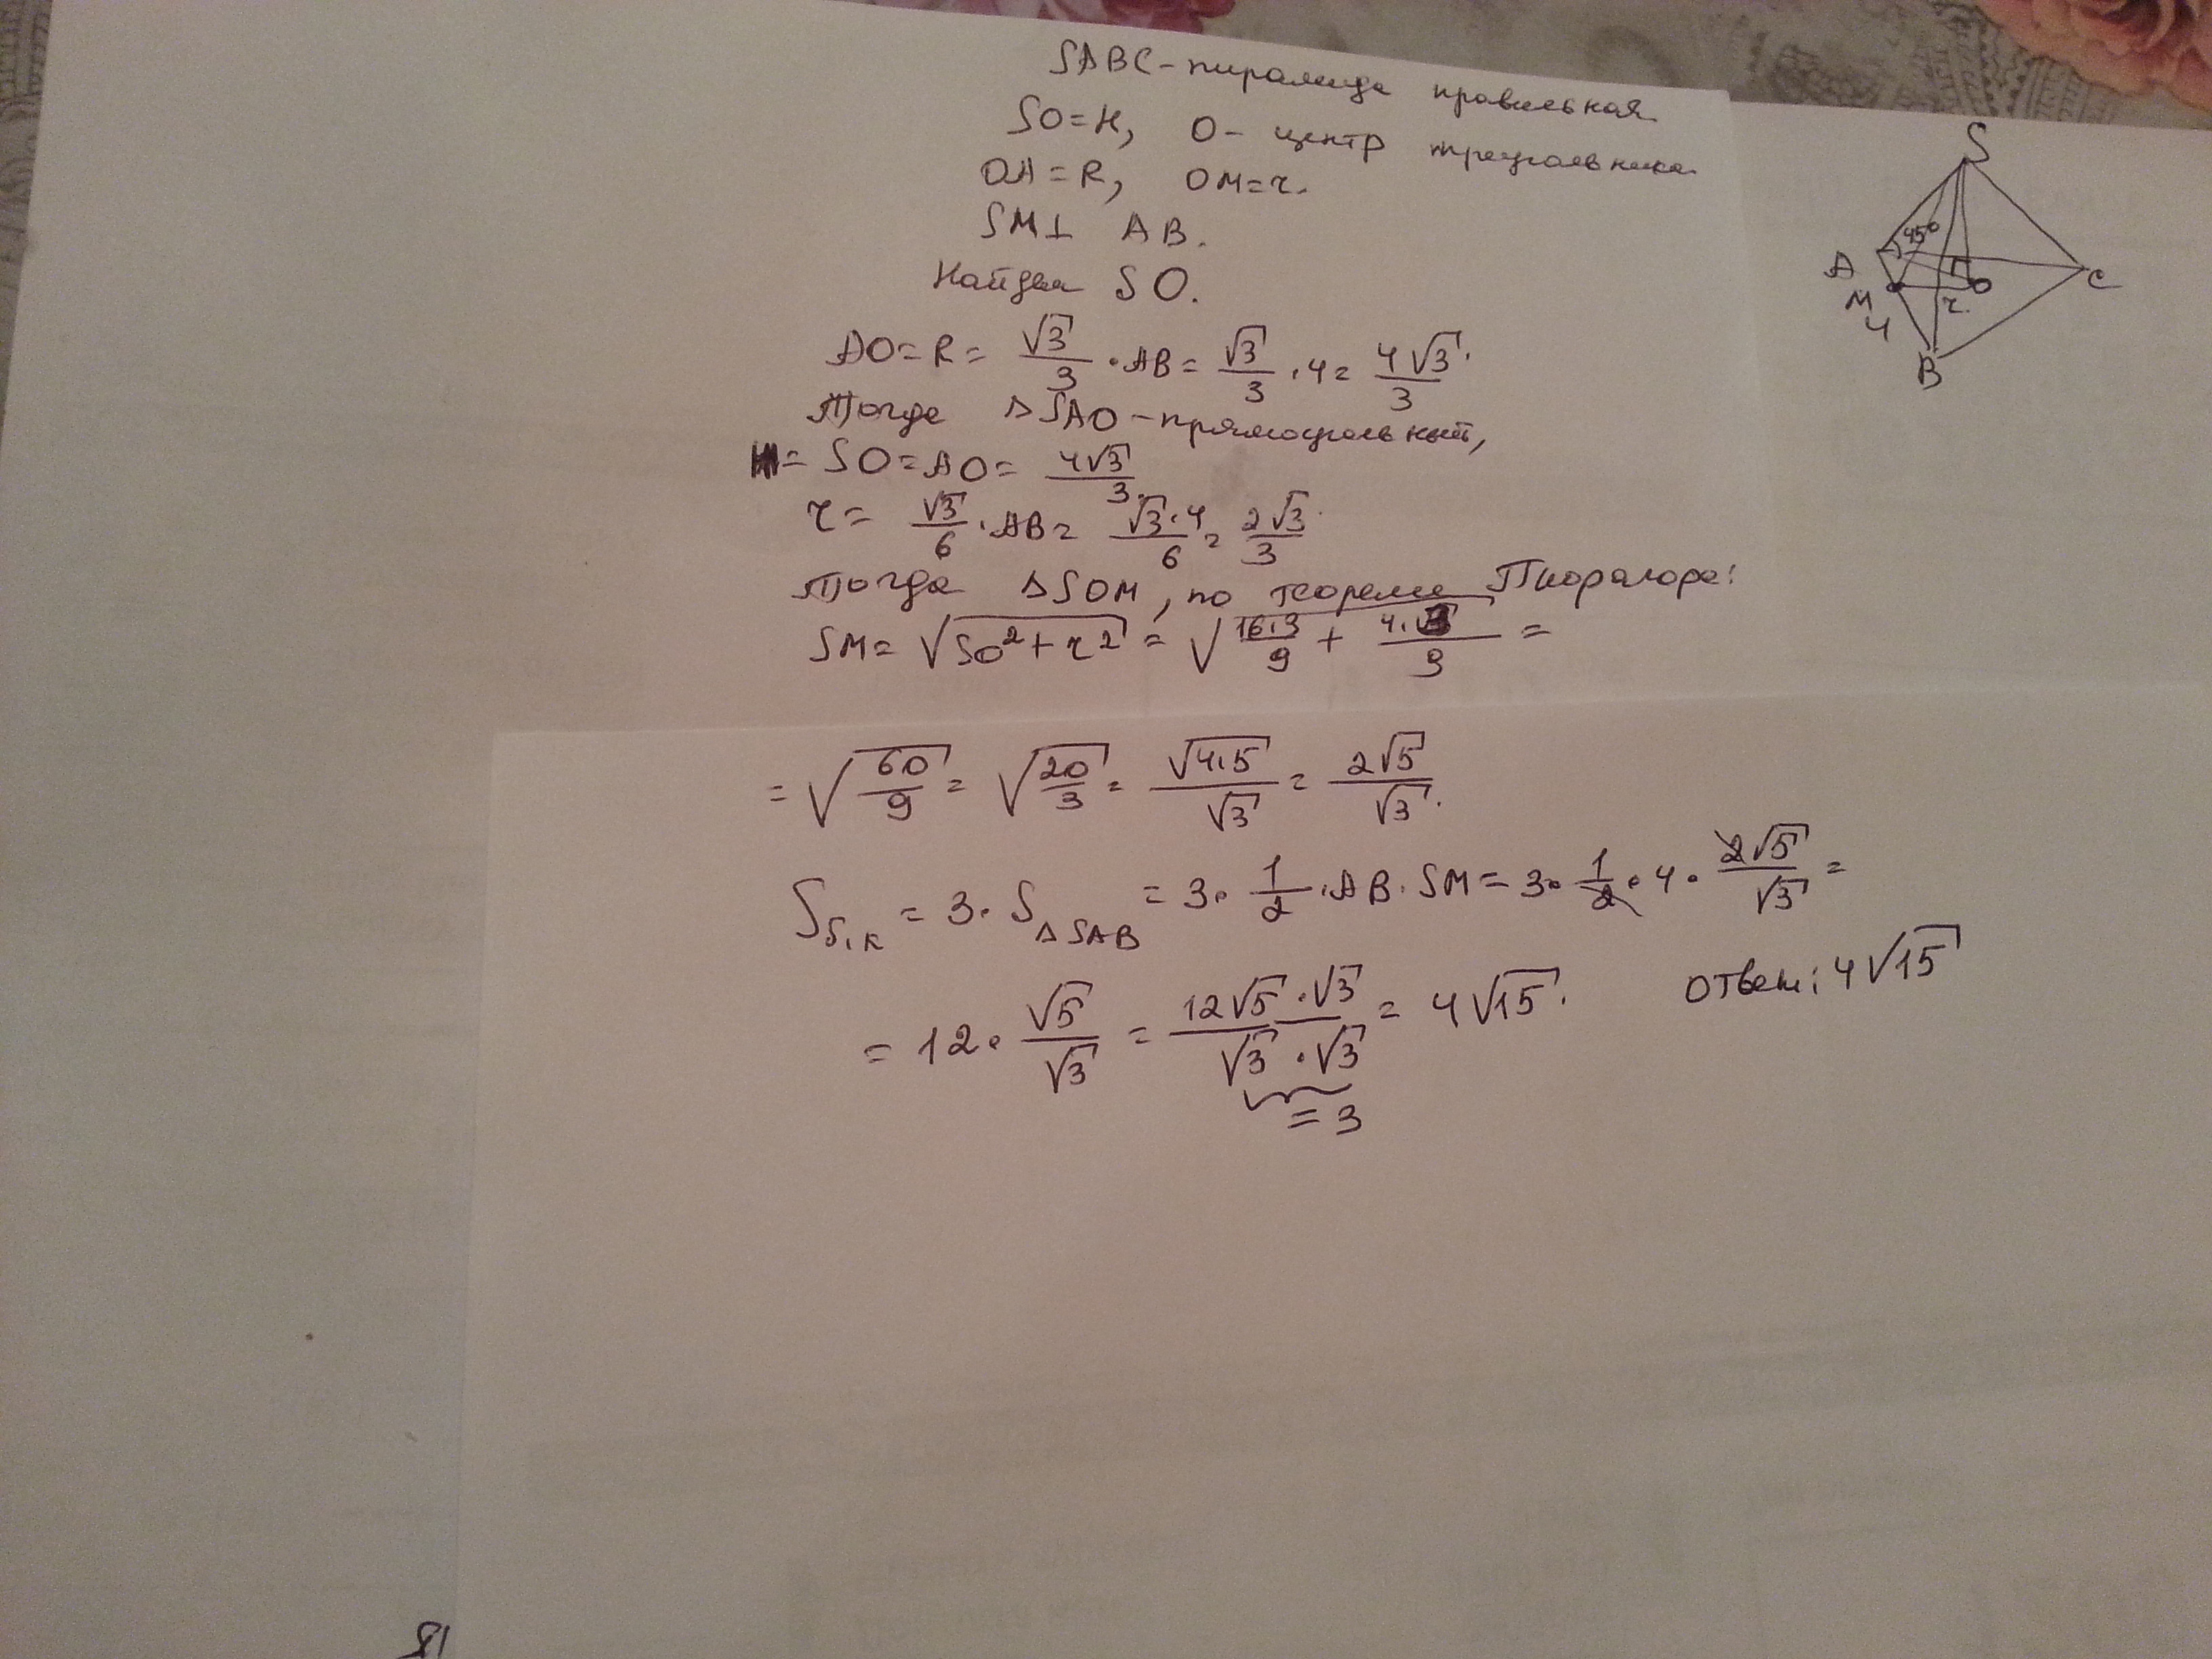 SABC - пирамида правильная
SO = H, O - центр треугольника
OA = R, OM = r.
SM ⊥ AB.
Найдем SO.
AO = R = √3/3 · AB = √3/3 · 4 = 4√3/3.
Тогда △SAO - прямоугольный,
= SO = AO = 4√3/3.
r = √3/6 · AB = √3·4/6 = 2√3/3.
Тогда △SOM, по теореме Пифагора:
SM = √(SO² + r²) = √(16·3/9 + 4·3/9) =
= √(60/9) = √(20/3) = √(4·5)/√3 = 2√5/√3.
S б.к = 3 · S △SAB = 3 · 1/2 · AB · SM = 3 · 1/2 · 4 · 2√5/√3 =
= 12 · √5/√3 = 12√5 · √3/√3 · √3 = 4√15. Ответ: 4√15
= 3
S
45°
A
C
M
O
r
4
B